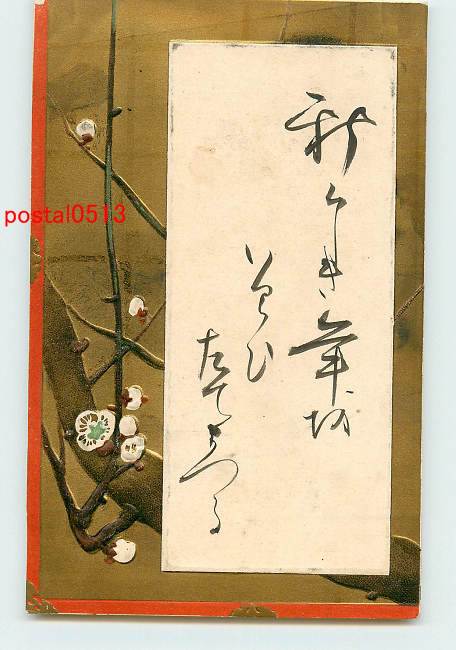 新しき年を
いはひ
たてまつる
postal0513